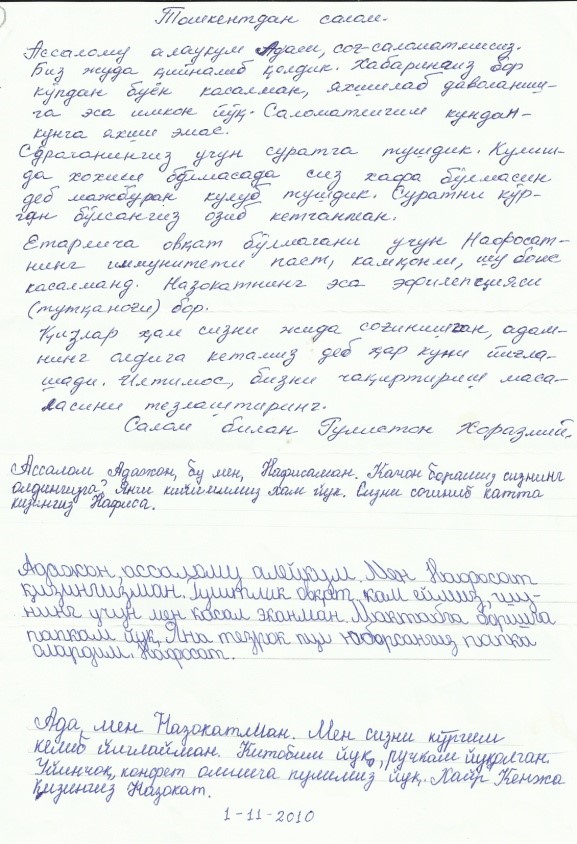 Тошкентдан салом.
Ассалому алаукум Адаси, соғ-саломатмисиз.
Биз жуда қийналиб қолдик. Хабарингиз бор
кўпдан буён касалман, яхшилаб даволаниш-
га эса имкон йўқ. Саломатлигим кундан-
кунга яхши эмас.
Сўраганингиз учун суратга тушдик. Кулиш-
да хохиш бўлмасада сиз хафа бўлмасин
деб мажбуран кулуб тушдик. Суратни кўр-
ган бўлсангиз озиб кетганман.
Етарлича овқат бўлмагани учун Нафосат-
нинг иммунитети паст, камқонли, шу боис
касалманд. Назокатнинг эса эфилепцияси
(тутқаноғи) бор.
Қизлар ҳам сизни жида соғинишган, адам-
нинг олдига кетамиз деб ҳар куни йиғла-
шади. Илтимос, бизни чақиртириш маса-
ласини тезлаштиринг.
Салом билан Гулистон Хоразмий.
Ассалом Адажон, бу мен, Нафисаман. Качон борамиз сизнинг
олдингизга? Янги кийимимиз хам йук. Сизни согиниб катта
кизингиз Нафиса.
Адажон, ассалому алейкум. Мен Нафосат
қизингизман. Гуштлик овқат кам еймиз, шу-
нинг учун мен касал эканман. Мактабга боришга
папкам йуқ. Яна тезрок пул юборсангиз папка
олардим. Нафосат.
Ада, мен Назокатман. Мен сизни кўргим
келиб йиглайман. Китобим йуқ, ручкам йуқолган.
Уйинчоқ, конфет олишга пулимиз йуқ. Хайр Кенжа
қизингиз Назокат.
1-11-2010